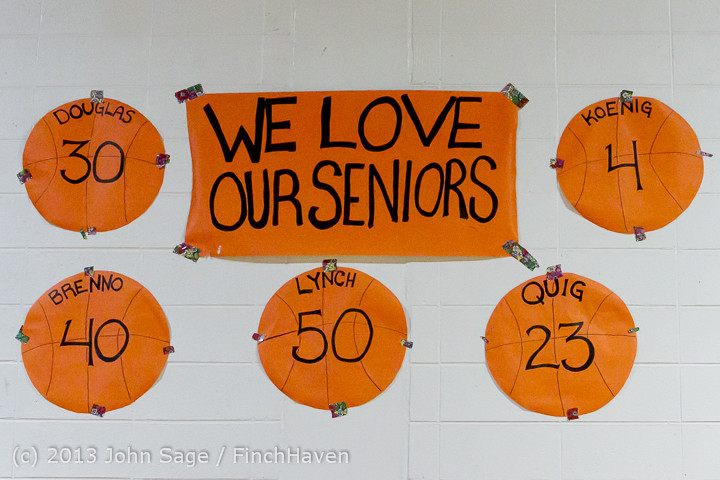 DOUGLAS
30
WE LOVE
OUR SENIORS
KOENIG
4
BRENNO
40
LYNCH
50
QUIG
23
(c) 2013 John Sage / FinchHaven